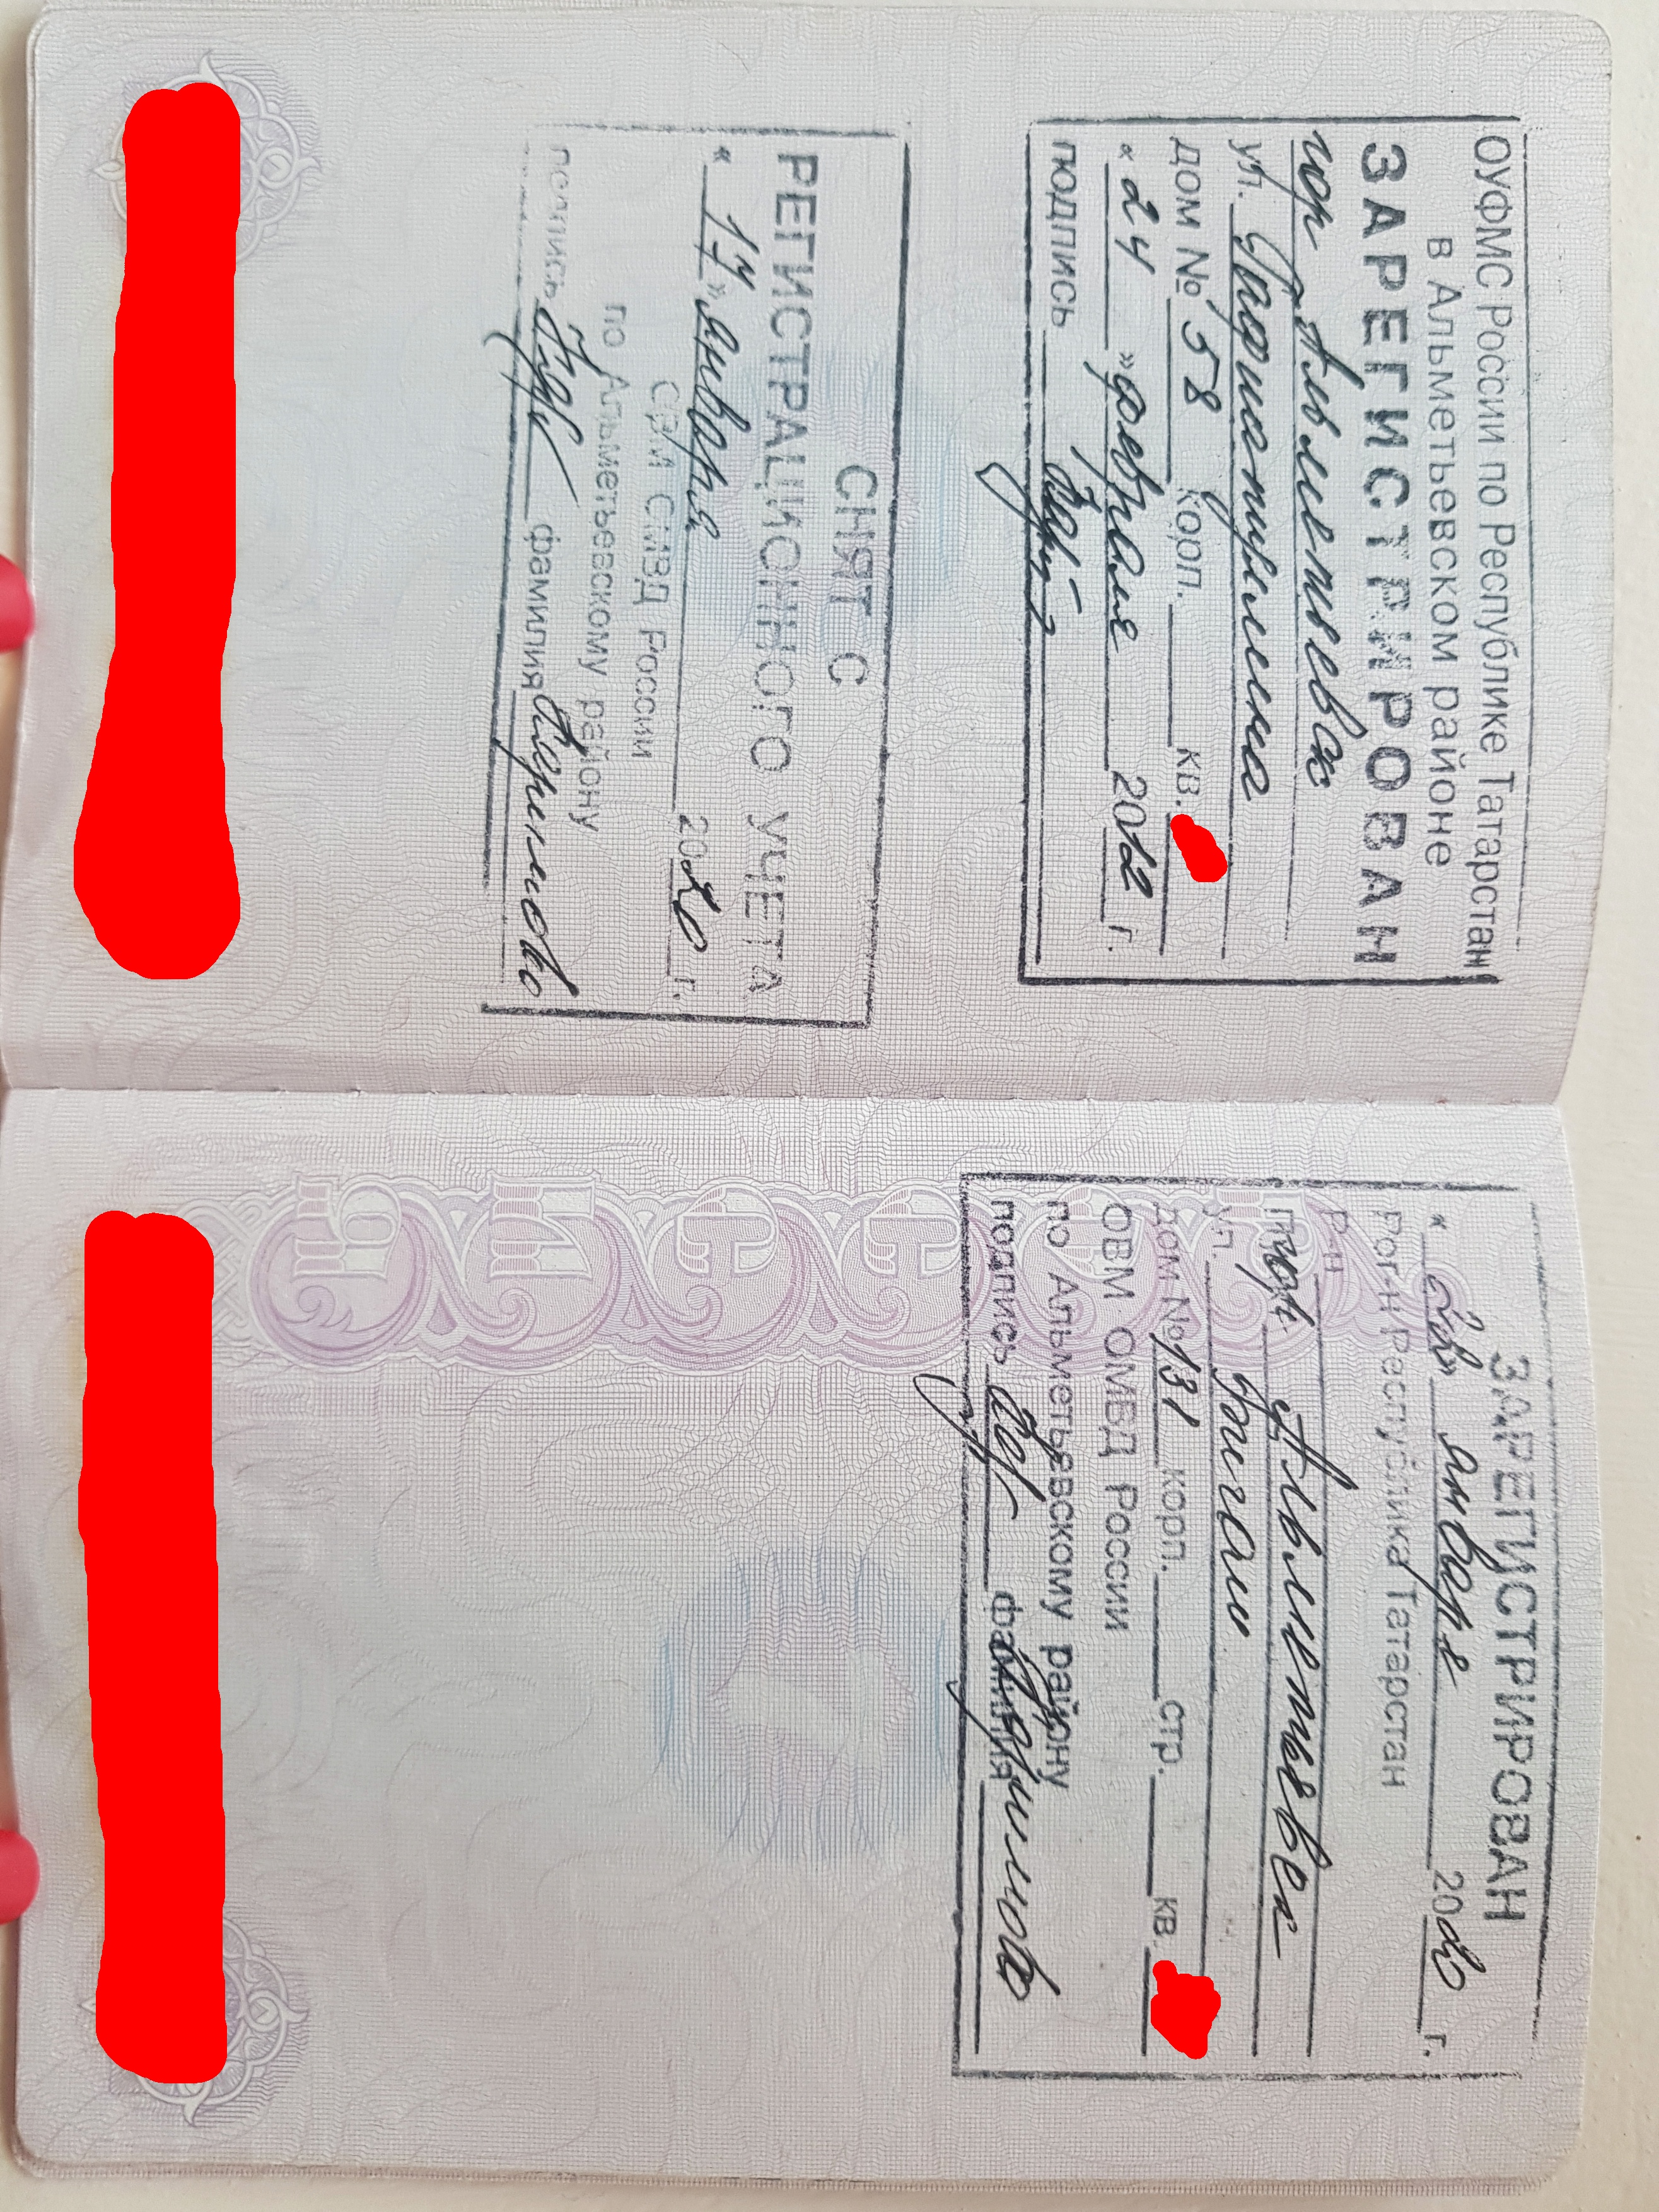 ОУФМС России по Республике Татарстан
в Альметьевском районе
ЗАРЕГИСТРИРОВАН
гор Альметьевск
ул.
дом № 58 корп. кв.
« 24 » февраля 2012 г.
подпись
СНЯТ С
РЕГИСТРАЦИОННОГО УЧЕТА
« 17 » января 2020 г.
ОВМ ОМВД России
по Альметьевскому району
подпись фамилия
ЗАРЕГИСТРИРОВАН
« » января 2020 г.
Рег-н Республика Татарстан
Р-н
Альметьевск
ул.
дом № 131 корп. стр. кв.
ОВМ ОМВД России
по Альметьевскому району
подпись фамилия